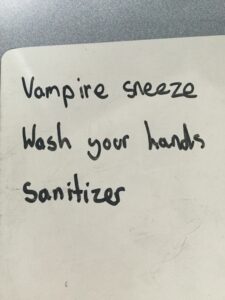 Vampire sneeze
Wash your hands
Sanitizer